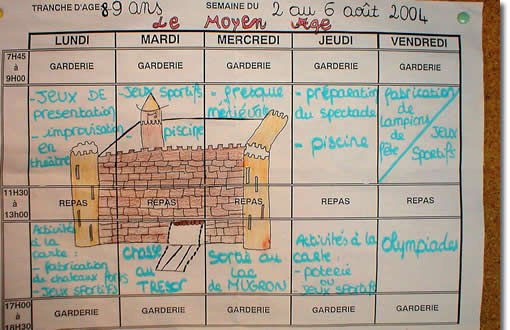 TRANCHE D'AGE 8-9 ans SEMAINE DU 2 au 6 août 2004
Le Moyen Age
LUNDI MARDI MERCREDI JEUDI VENDREDI
7H45 à 9H00 GARDERIE GARDERIE GARDERIE GARDERIE GARDERIE
- JEUX DE présentation
- improvisation en théâtre
JEUX Sportifs
piscine
- fresque médiévale
- préparation du spectacle
- piscine
fabrication de lampions de fête
JEUX Sportifs
11H30 à 13H00 REPAS REPAS REPAS REPAS REPAS
Activités à la carte :
- fabrication de chateaux forts
- JEUX SPORTIFS
chasse au TRESOR
Sortie au LAC de MUGRON
Activités à la carte
- poterie ou
- JEUX SPORTIFS
olympiades
17H00 à 18H30 GARDERIE GARDERIE GARDERIE GARDERIE GARDERIE